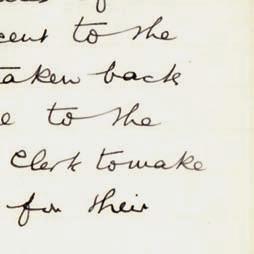 to the
taken back
to the
Clerk to make
for their